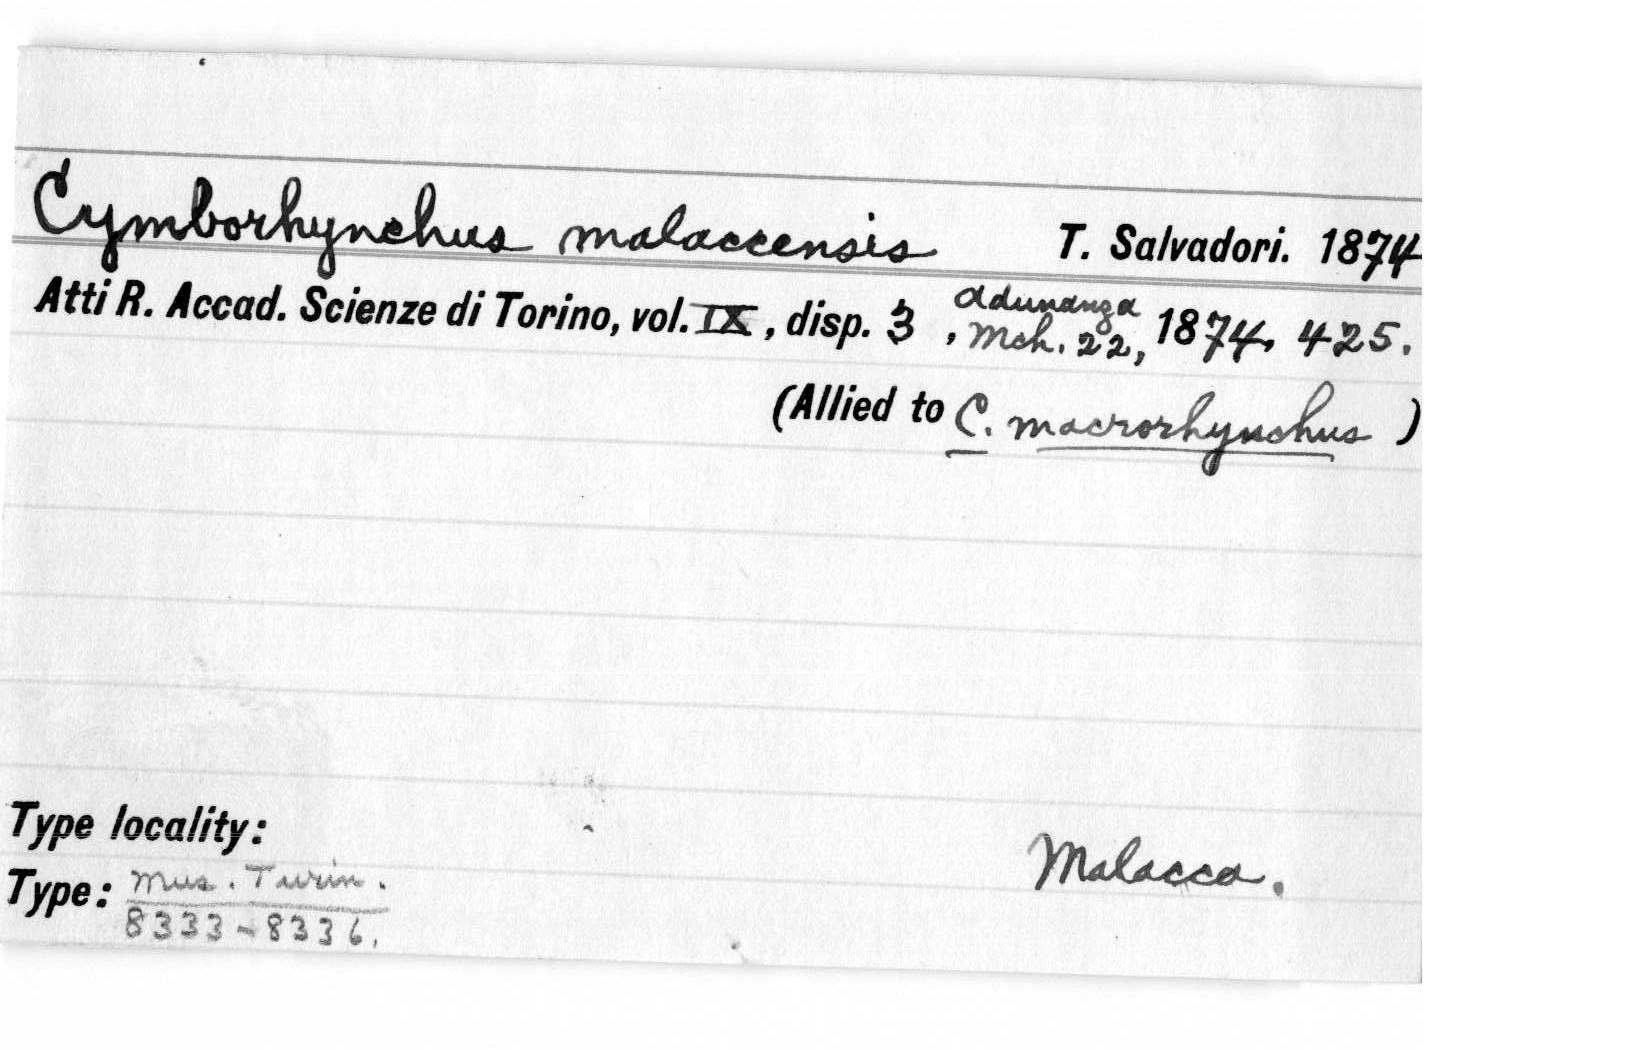 Cymborhynchus malaccensis T. Salvadori. 1874
Atti R. Accad. Scienze di Torino, vol. IX, disp. 3, adunanza Mch. 22, 1874, 425.
(Allied to C. macrorhynchus)
Type locality: Malacca.
Type: Mus. Turin.
8333-8336.